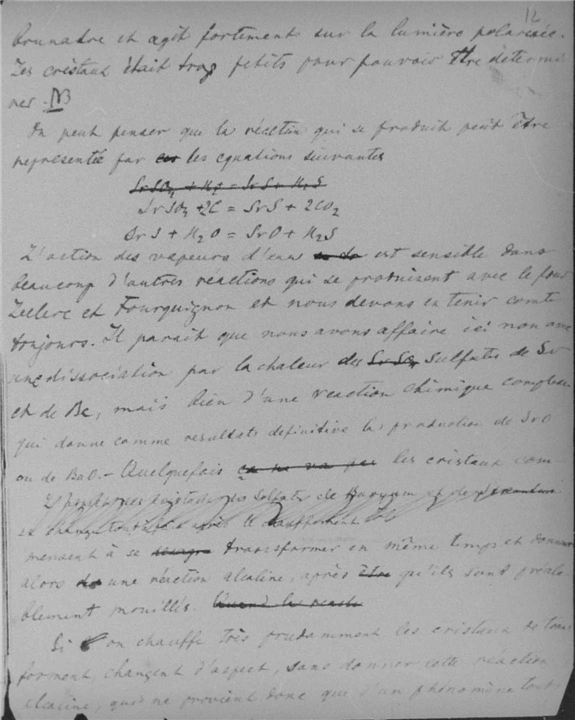 12
brunatre et agit fortement sur la lumière polarisée.
Les cristaux était trop petits pour pouvoir être détermi
ner. NB
On peut penser que la réaction qui se produit peut être
representée par les equations suivantes
SrSO4 + H2 = SrS + H2S
SrSO4 + 2C = SrS + 2CO2
SrS + H2O = SrO + H2S
L'action des vapeurs d'eau est sensible dans
beaucoup d'autres réactions qui se produisent avec le four
Leclerc et Fourquignon et nous devons en tenir comte
toujours. Il parait que nous avons affaire ici non avec
une dissociation par la chaleur des sulfates de Sr
et de Ba, mais bien d'une reaction chimique complexe
qui donne comme resultats definitive la production de SrO
ou de BaO. - Quelquefois les cristaux com
sulfates de Baryum et de
et après
mencent à se transformer en même temps et donnent
alors une réaction alcaline, après qu'ils sont préala
blement mouillés. Quand
Si on chauffe très prudamment les cristaux se tran
forment, changent d'aspect, sans donner cette réaction
alcaline, qui ne provient donc que d'un phénomène tout